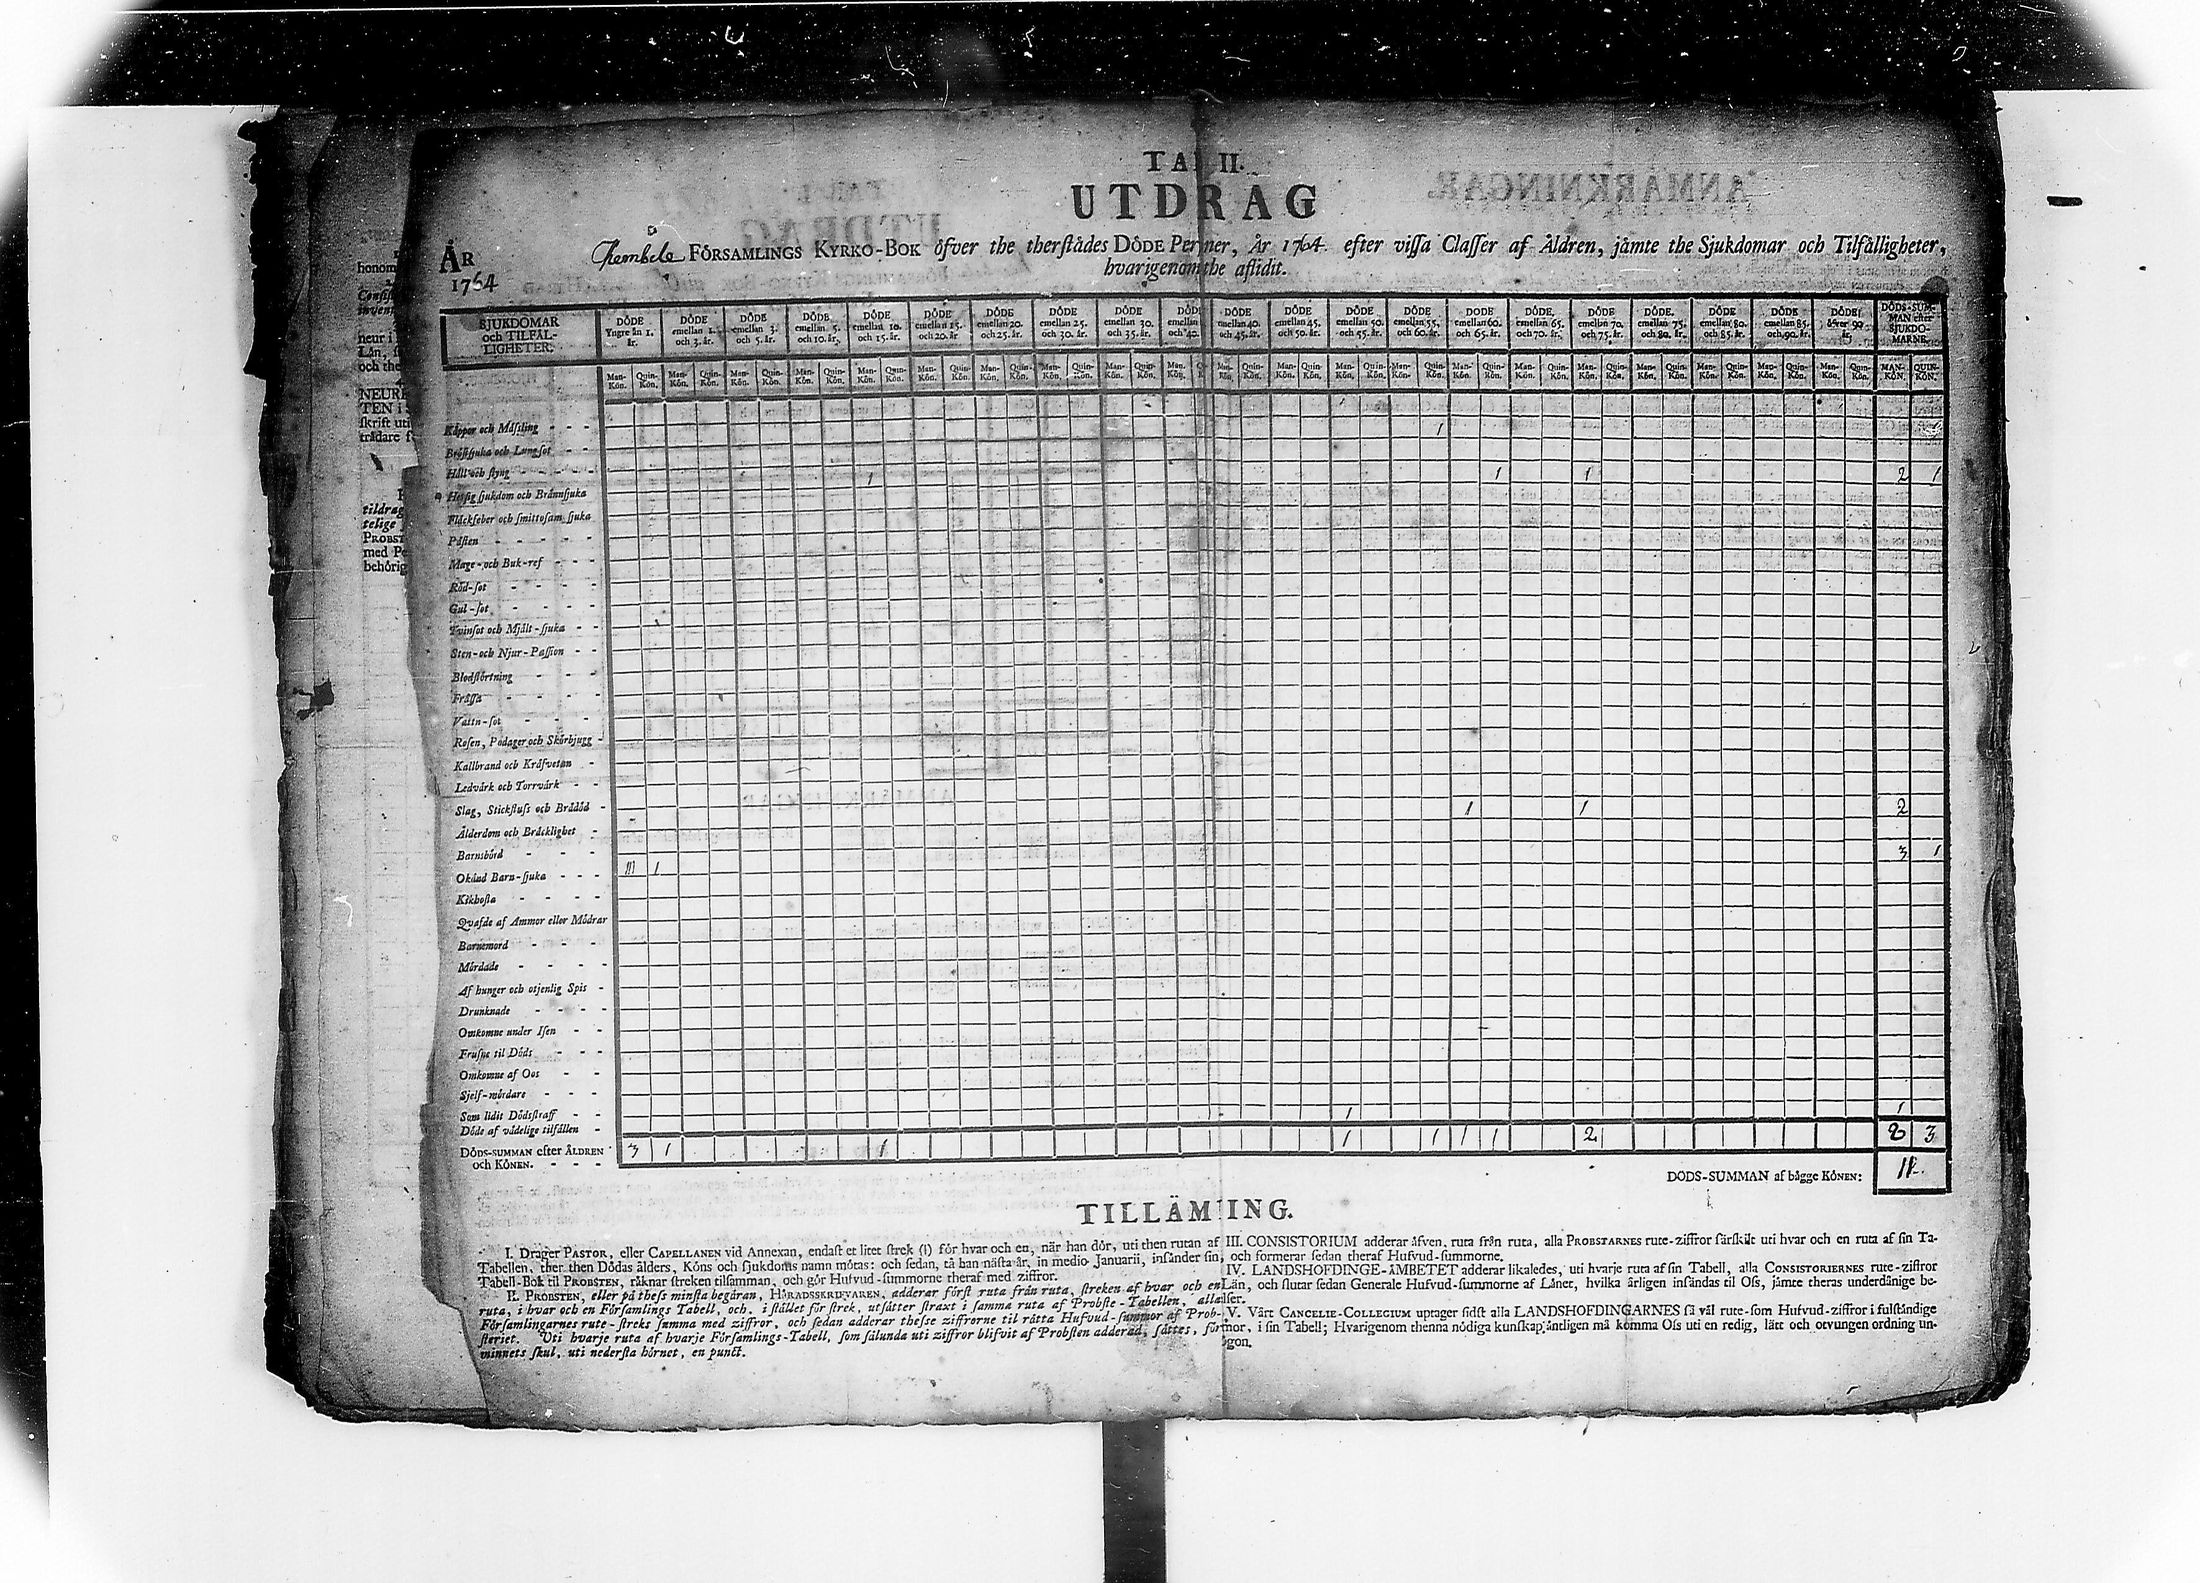 TAB II.
UTDRAG
ÅR
1764
Kembele FÖRSAMLINGS KYRKO-BOK öfver the therstådes DÖDE Personer, År 1764 efter vissa Classer af Åldren, jämte the Sjukdomar och Tilfälligheter,
hvarigenom the aflidit.
SJUKDOMAR och TILFÄLLIGHETER.
DÖDE Yngre än 1. år.
DÖDE emellan 1. och 3. år.
DÖDE emellan 3. och 5. år.
DÖDE emellan 5. och 10. år.
DÖDE emellan 10. och 15. år.
DÖDE emellan 15. och 20. år
DÖDE emellan 20. och 25. år.
DÖDE emellan 25. och 30. år.
DÖDE emellan 30. och 35. år.
DÖDE emellan och 40.
DÖDE emellan 40. och 45. år.
DÖDE emellan 45. och 50. år.
DÖDE emellan 50. och 55. år.
DÖDE emellan 55. och 60. år.
DÖDE emellan 60. och 65. år.
DÖDE emellan 65. och 70. år.
DÖDE emellan 70. och 75. år.
DÖDE emellan 75. och 80. år.
DÖDE emellan 80. och 85. år.
DÖDE emellan 85. och 90. år.
DÖDE öfver 90 år
DÖDS-SUMMAN efter SJUKDOMARNE.
Man-Kön. Quin-Kön. Man-Kön. Quin-Kön. Man-Kön. Quin-Kön. Man-Kön. Quin-Kön. Man-Kön. Quin-Kön. Man-Kön. Quin-Kön. Man-Kön. Quin-Kön. Man-Kön. Quin-Kön. Man-Kön. Quin-Kön. Man-Kön. Quin-Kön. Man-Kön. Quin-Kön. Man-Kön. Quin-Kön. Man-Kön. Quin-Kön. Man-Kön. Quin-Kön. Man-Kön. Quin-Kön. Man-Kön. Quin-Kön. Man-Kön. Quin-Kön. Man-Kön. Quin-Kön. Man-Kön. Quin-Kön. Man-Kön. Quin-Kön. Man-Kön. Quin-Kön. MAN-KÖN. QUIN-KÖN.
Koppor och Mässling - - - 1 1
Bröstsjuka och Lungsot - -
Håll och styng - - - - 1 1 1 2 1
Hetsig sjukdom och Brännsjuka
Fläckfeber och smittosam sjuka
Pästen - - - - -
Mage- och Buk-ref - - -
Röd-sot - - - -
Gul-sot - - - -
Tvinsot och Mjält-sjuka - -
Sten- och Njur-Passion - -
Blodstörtning - - -
Frässa - - - -
Vattn-sot - - -
Rosen, Podager och Skörbjugg -
Kallbrand och Kräfvetan -
Ledvärk och Torrvärk - -
Slag, Stickfluss och Brådöd - 1 1 2
Ålderdom och Bräcklighet -
Barnsbörd - - - 3 1
Okänd Barn-sjuka - - - III 1
Kikhosta - - - -
Qvafde af Ammor eller Mödrar
Barnemord - - -
Mördade - - - -
Af hunger och otjenlig Spis -
Drunknade - - - -
Omkomne under Isen - -
Frusne til Döds - - -
Omkomne af Oos - -
Sjelf-mördare - - -
Som lidit Dödsstraff - - 1 1
Döde af vådelige tilfällen -
DÖDS-SUMMAN efter ÅLDREN
och KÖNEN. - - - 3 1 1 1 1 1 1 2 8 3
DÖDS-SUMMAN af bägge KÖNEN: 11.
TILLÄMNING.
I. Drager PASTOR, eller CAPELLANEN vid Annexan, endast et litet strek (I) för hvar och en, när han dör, uti then rutan af
Tabellen, ther then Dödas ålders, Köns och sjukdoms namn mötas: och sedan, tå han nästa år, in medio Januarii, insänder sin
Tabell-Bok til PROBSTEN, räknar streken tilsamman, och gör Hufvud-summorne theraf med ziffror.
II. PROBSTEN, eller på thess minsta begäran, HÄRADSSKRIFVAREN, adderar först ruta från ruta, streken af hvar och en
ruta, i hvar och en Församlings Tabell, och, i stället för strek, utsätter straxt i samma ruta af Probste-Tabellen, alla
Församlingarnes rute-streks summa med ziffror, och sedan adderar thesse ziffrorne til rätta Hufvud-summor af Prob-
steriet. Uti hvarje ruta af hvarje Församlings-Tabell, som sålunda uti ziffror blifvit af Probsten adderad, sättes, för
minnets skul, uti nedersta hörnet, en punct.
III. CONSISTORIUM adderar äfven, ruta från ruta, alla PROBSTARNES rute-ziffror särskilt uti hvar och en ruta af sin Ta-
och formerar sedan theraf Hufvud-summorne.
IV. LANDSHOFDINGE-ÄMBETET adderar likaledes, uti hvarje ruta af sin Tabell, alla CONSISTORIERNES rute-ziffror
Län, och slutar sedan Generale Hufvud-summorne af Länet, hvilka årligen insändas til Oss, jämte theras underdånige be-
ser.
V. Vårt CANCELIE-COLLEGIUM uptager sidst alla LANDSHOFDINGARNES så väl rute-som Hufvud-ziffror i fulständige
mor, i sin Tabell; Hvarigenom thenna nödiga kunskap äntligen må komma Oss uti en redig, lätt och otvungen ordning un-
gon.